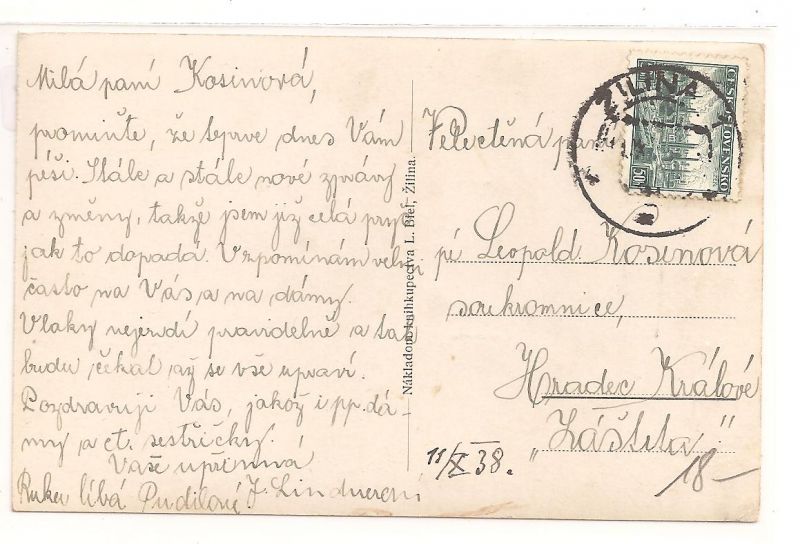 Milá paní Kosinová,
promiňte, že teprve dnes Vám
píši. Stále a stále nové zprávy
a změny, takže jsem již celá
jak to dopadá. Vzpomínám velmi
často na Vás a na dámy.
Vlaky nejezdí pravidelně a tak
budu čekat, až se vše upraví.
Pozdravuji Vás, jakož i pp. dá-
my a ct. sestřičky.
Vaše upřímná
líbá J. Lindnerová
Nákladom kníhkupectva L. Biel, Žilina.
ŽILINA
ČESKOSLOVENSKO
50
Velectěná
pí Leopold. Kosinová
soukromnice,
Hradec Králové
„Záštita“
11/X 38.
18—